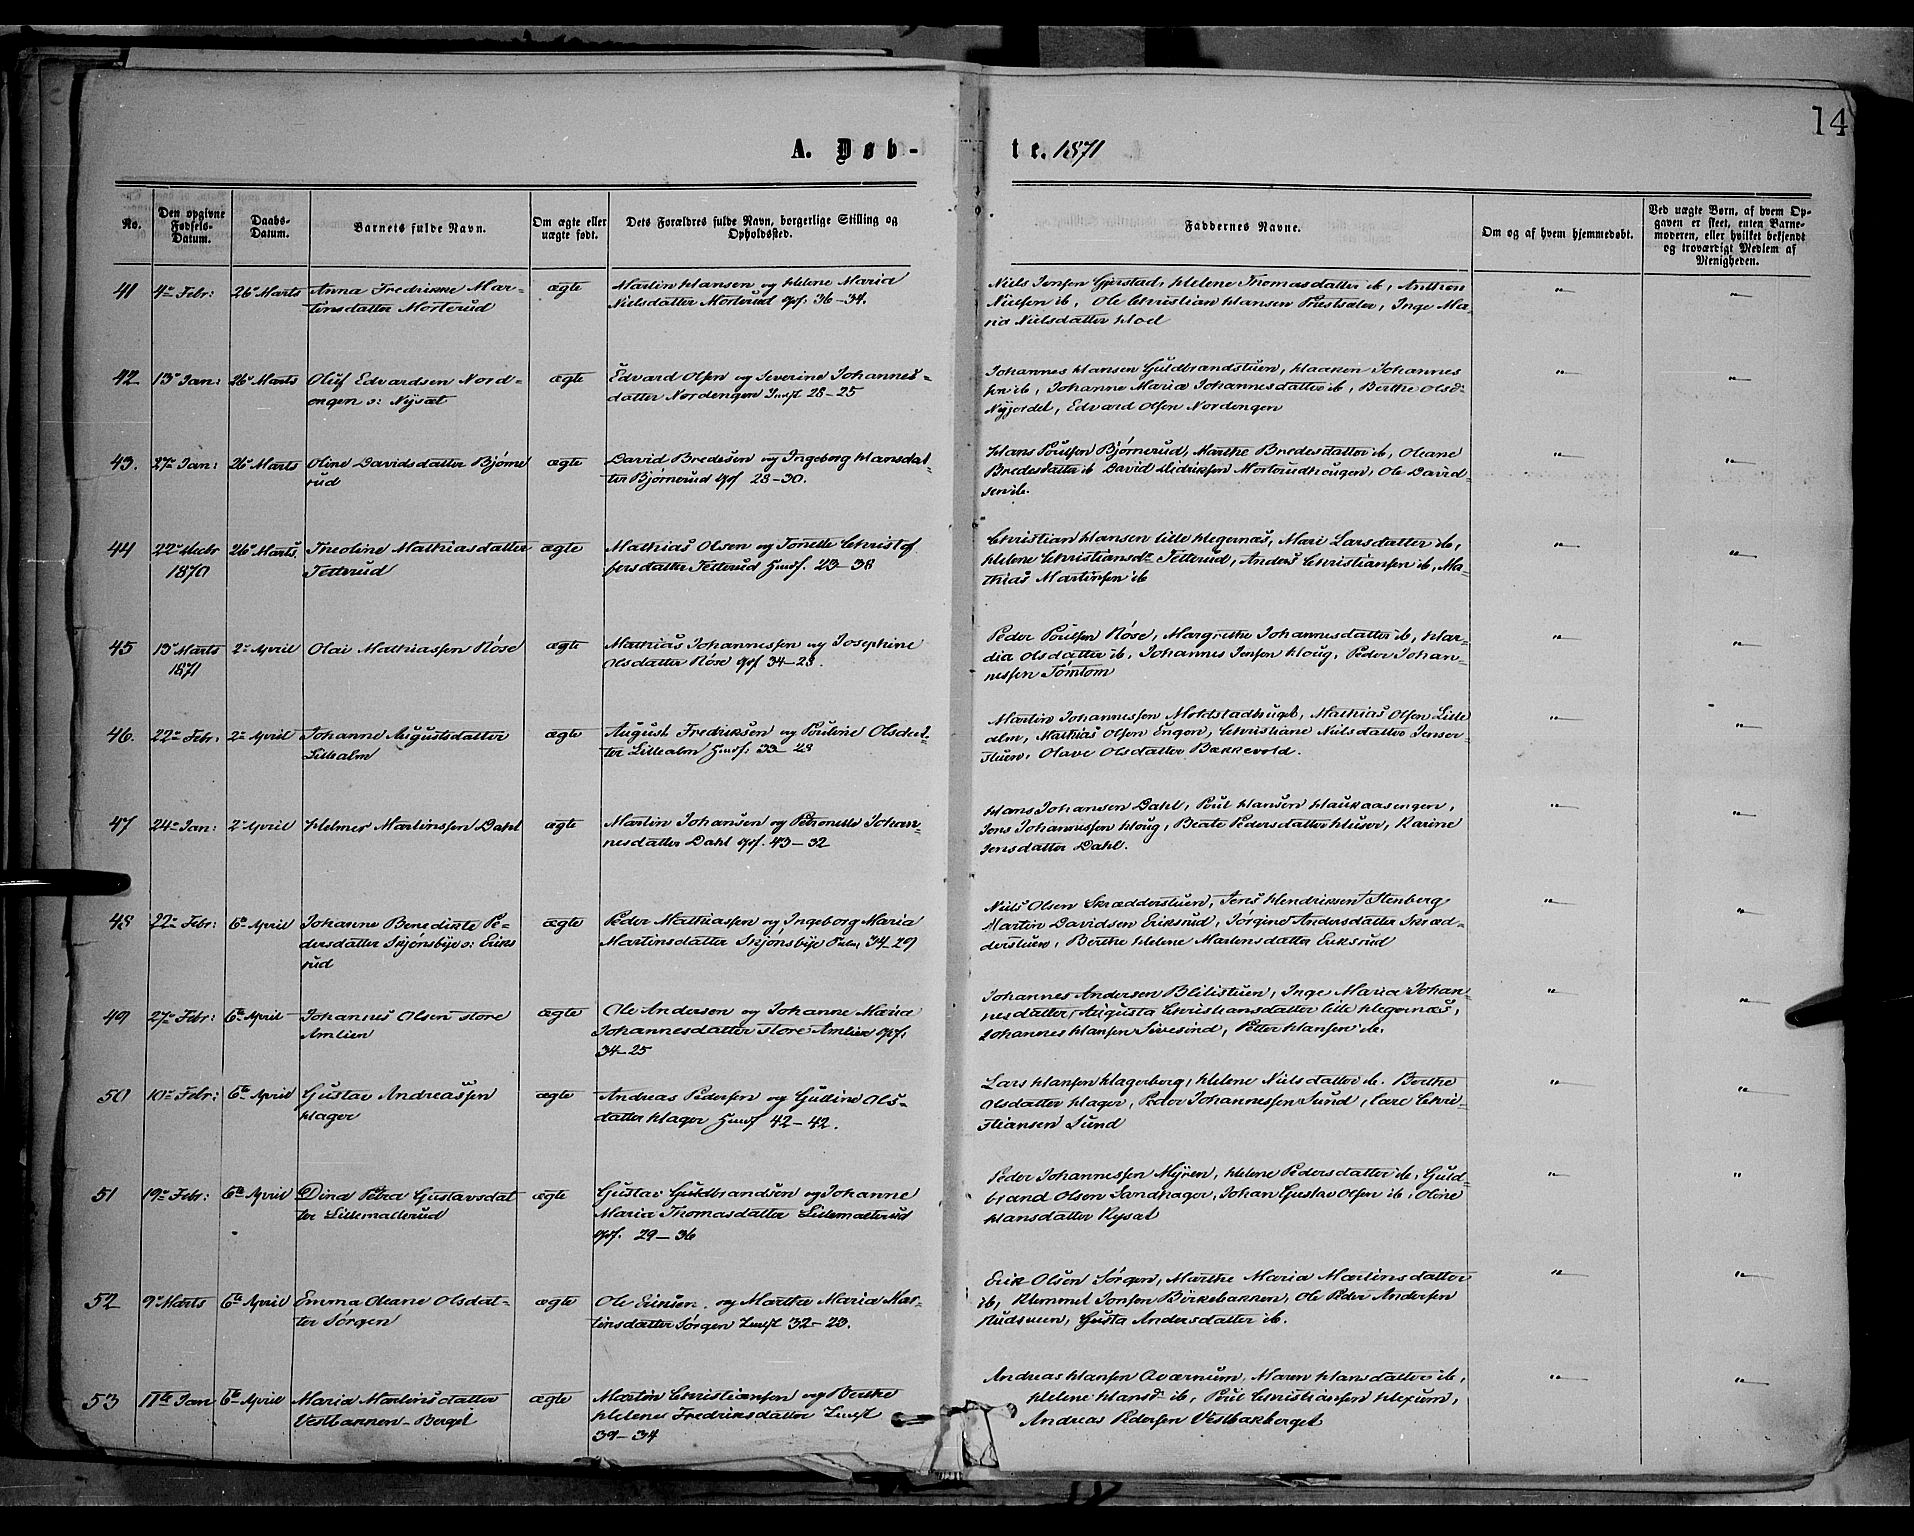 14
A. Døb-
te. 1871
No.
Den opgivne
Fødsels-
Datum.
Daabs-
Datum.
Barnets fulde Navn.
Om ægte eller
uægte født.
Dets Forældres fulde Navn, borgerlige Stilling og
Opholdssted.
Faddernes Navne.
Om og af hvem hjemmedøbt.
Ved uægte Børn, af hvem Op-
gaven er skeet, enten Barne-
moderen, eller hvilket bekjendt
og troværdigt Medlem af
Menigheden.
41 4de Febr: 26de Marts Anna Fredrikke Mar-
tinsdatter Morterud
ægte
Martin Hansen og Helene Maria
Nielsdatter Morterud Gpf. 36-34.
Niels Jensen Gjerstad, Helene Thomasdatter ib, Anthon
Nielsen ib, Ole Christian Hansen Præstsæter, Inge Ma-
ria Nielsdatter Hoel
42 13de Jan: 26de Marts Oluf Edvardsen Nord-
engen o: Nysæt
ægte
Edvard Olsen og Severine Johannes-
datter Nordengen Indst 28-25
Johannes Hansen Guldbrandstuen, Haaken Johannes
sen ib, Johanne Maria Johannesdatter ib, Berthe Olsd.
Nyjordet, Edvard Olsen Nordengen
43. 27de Jan: 26de Marts Oline Davidsdatter Bjørne
rud
ægte
David Bredesen og Ingeborg Hansdat-
ter Bjørnerud Gpf 28-30.
Hans Poulsen Bjørnerud, Marthe Bredesdatter ib, Oleane
Bredesdatter ib David Didriksen Morterudhougen, Ole David-
sen ib.
44 22de Decbr
1870
26de Marts Theoline Mathiasdatter
Tetterud
ægte
Mathias Olsen og Tonette Christof
fersdatter Tetterud Husf. 23-38
Christian Hansen lille Hegernæs, Mari Larsdatter ib,
Helene Christiansdr Tetterud, Anders Christiansen ib, Ma-
thias Martinsen ib
45 13de Marts
1871
2de April Olai Mathiassen Røse
ægte
Mathias Johannessen og Josephine
Olsdatter Røse Gpf 34-28.
Peder Poulsen Røse, Margrethe Johannesdatter ib, Mar-
dia Olsdatter ib, Johannes Jensen Houg, Peder Johan-
nessen Tømtom
46. 22de Febr: 2de April Johanne Augustsdatter
Lillealm
ægte
August Fredriksen og Pouline Olsdat-
ter Lillealm Husf: 33-23
Martin Johannessen Molstadhugt, Mathias Olsen Lille
alm, Mathias Olsen Engen, Christiane Nielsdatter Jenser-
stuen, Olave Olsdatter Bækkevold.
47 24de Jan: 2de April Helmer Martinssen Dahl
ægte
Martin Johansen og Petronelle Johan-
nesdatter Dahl Gpf. 43-32
Hans Johansen Dahl, Poul Hansen Haukaasengen,
Jens Johannessen Houg, Beate Pedersdatter Huser, Karine
Jensdatter Dahl.
48 22de Febr: 6te April Johanne Benedikte Pe-
dersdatter Skjønsbye o: Eriks
rud
ægte
Peder Mathiassen og Ingeborg Maria
Martinsdatter Skjønsbye 34-29
Niels Olsen Skrædderstuen, Jens Hendriksen Stenberg
Martin Davidsen Eriksrud, Jørgine Andersdatter Skræd-
derstuen, Berthe Helene Martensdatter Eriksrud
49 27de Febr: 6te April Johannes Olsen store
Amlien
ægte
Ole Andersen og Johanne Maria
Johannesdatter store Amlien Gpf.
34-25
Johannes Andersen Blilistuen, Inge Maria Johan-
nesdatter, Augusta Christiansdatter lille Hegernæs,
Johannes Hansen Sivesind, Petter Hansen ib.
50 10de Febr: 6te April Gustav Andreassen
Hager
ægte
Andreas Pedersen og Gulline Ols-
datter Hager Husf 42-42.
Lars Hansen Hagerberg, Helene Nielsdatter ib. Berthe
Olsdatter Hager, Peder Johannessen Sund, Carl Chri-
stiansen Sund
51 19de Febr: 6te April Dina Petra Gustavsdat
ter Lillemælterud
ægte
Gustav Guldbrandsen og Johanne
Maria Thomasdatter Lillemælterud
Gpf. 29-36
Peder Johannessen Myren, Helene Pedersdatter ib, Guld-
brand Olsen Sandhager, Johan Gustav Olsen ib, Oline
Hansdatter Rysæt
52 9de Marts 6te April Emma Oleane Olsdat-
ter Sørgen
ægte
Ole Eriksen og Marthe Maria Mar-
tinsdatter Sørgen Indst 32-23.
Erik Olsen Sørgen, Marthe Maria Martinsdatter
ib, Klemmet Jonsen Birkebakken, Ole Peder Andersen
, Gusta Andersdatter ib.
53 11te Jan 6te April Maria Martinsdatter
Vestbakken-Berget
ægte
Martin Christiansen og Berthe
Helene Fredriksdatter Indst
39-34
Andreas Hansen Aværnum, Maren Hansdatter ib,
Helene Hansd. ib, Poul Christiansen Hexum,
Andreas Pedersen Vestbakberget